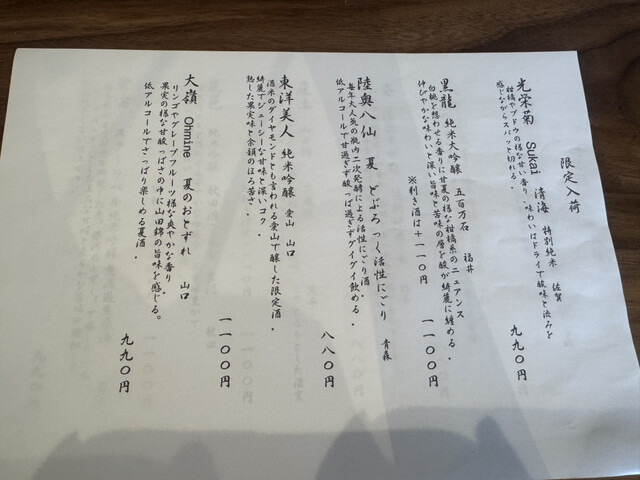 限定入荷
光栄菊 SUKAI 清海 特別純米 佐賀
柑橘やブドウの様な甘い香り 味わいはドライで酸味と渋みを
感じながらスパッと切れる。
九九〇円
黒龍 純米大吟醸 五百万石 福井
白桃を想わせる香りに甘夏の様な柑橘系のニュアンス
伸びやかな味わいと深い旨味と苦味の層を酸が綺麗に纏める。
※利き酒は+一一〇円
一一〇〇円
陸奥八仙 夏 どぶろっく活性にごり 青森
毎年大人気の瓶内二次発酵による活性にごり酒。
低アルコールで甘過ぎず酸っぱ過ぎずグイグイ飲める。
八八〇円
東洋美人 純米吟醸 愛山 山口
酒米のダイヤモンドとも言われる愛山で醸した限定酒
綺麗でジューシーな甘味と深いコク。
熟した果実味と余韻のほろ苦さ。
一一〇〇円
大嶺 Ohmine 夏のおとずれ 山口
リンゴやグレープフルーツ様な爽やかな香り。
果実の様な甘酸っぱさの中に山田錦の旨味を感じる。
低アルコールでさっぱり楽しめる夏酒。
九九〇円